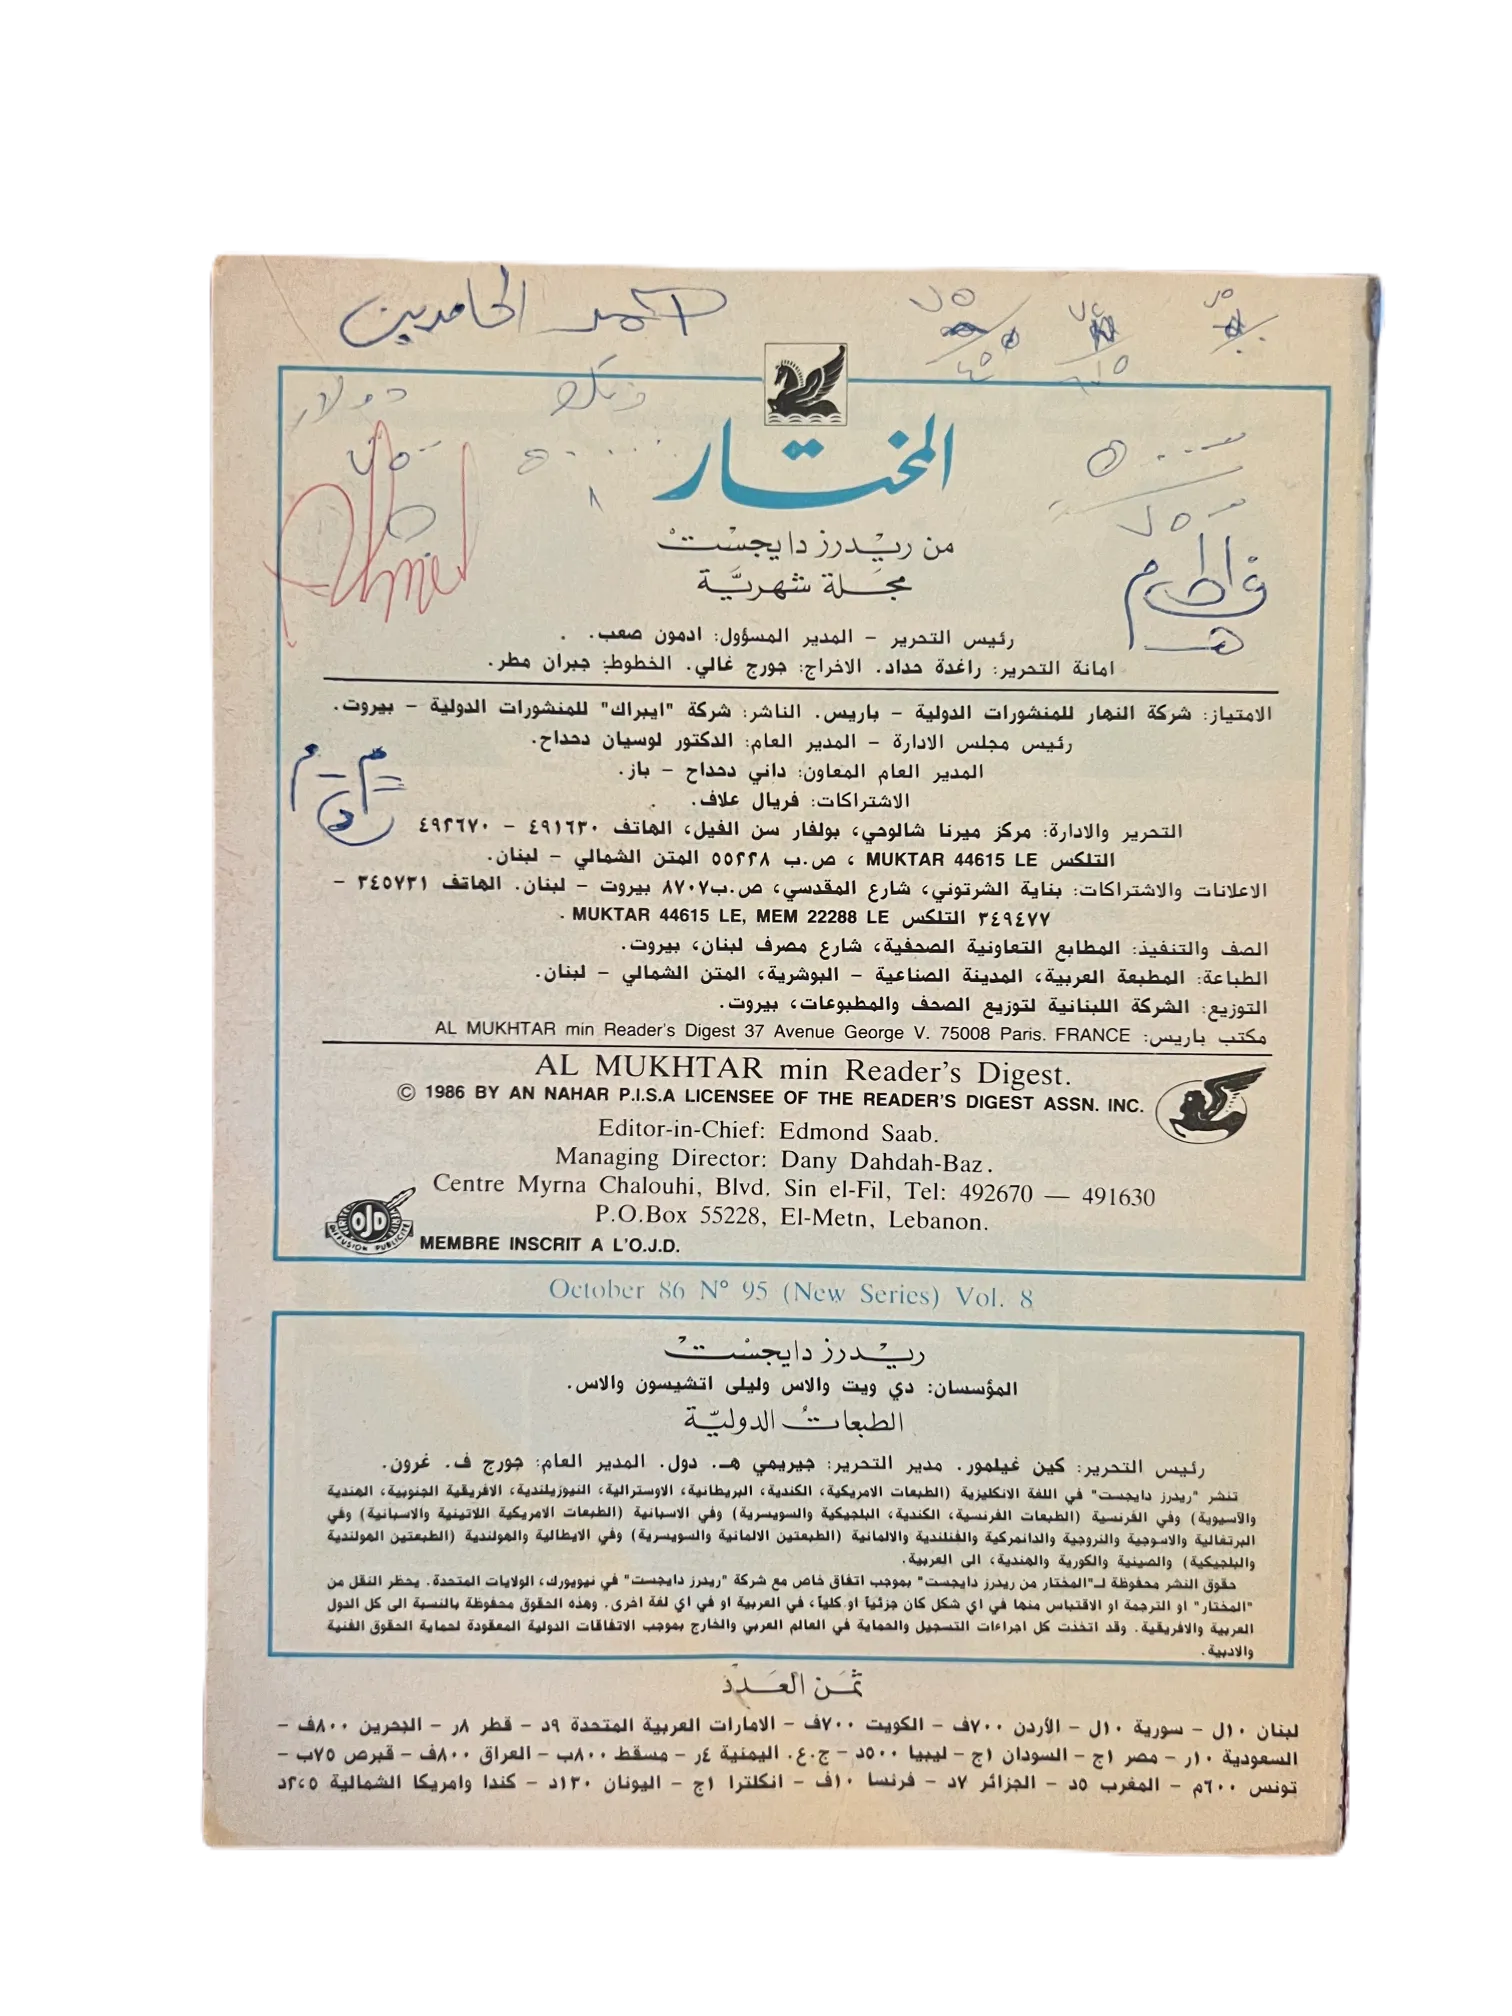 احمد الحامدين
دولار
Ahmed
فاطمه
المختار
من ريْدرز دايجسْتْ
مجَلة شهريَّة
رئيس التحرير – المدير المسؤول: ادمون صعب.
امانة التحرير: راغدة حداد. الاخراج: جورج غالي. الخطوط: جبران مطر.
الامتياز: شركة النهار للمنشورات الدولية – باريس. الناشر: شركة "ايبراك" للمنشورات الدولية – بيروت.
رئيس مجلس الادارة – المدير العام: الدكتور لوسيان دحداح.
المدير العام المعاون: داني دحداح – باز.
الاشتراكات: فريال علاف.
التحرير والادارة: مركز ميرنا شالوحي، بولفار سن الفيل، الهاتف ٤٩١٦٣٠ – ٤٩٢٦٧٠
التلكس MUKTAR 44615 LE ، ص.ب ٥٥٢٢٨ المتن الشمالي – لبنان.
الاعلانات والاشتراكات: بناية الشرتوني، شارع المقدسي، ص.ب٨٧٠٧ بيروت – لبنان. الهاتف ٣٤٥٧٣١ –
٣٤٩٤٧٧ التلكس MUKTAR 44615 LE, MEM 22288 LE .
الصف والتنفيذ: المطابع التعاونية الصحفية، شارع مصرف لبنان، بيروت.
الطباعة: المطبعة العربية، المدينة الصناعية – البوشرية، المتن الشمالي – لبنان.
التوزيع: الشركة اللبنانية لتوزيع الصحف والمطبوعات، بيروت.
مكتب باريس: AL MUKHTAR min Reader's Digest 37 Avenue George V. 75008 Paris. FRANCE
AL MUKHTAR min Reader's Digest.
© 1986 BY AN NAHAR P.I.S.A LICENSEE OF THE READER'S DIGEST ASSN. INC.
Editor-in-Chief: Edmond Saab.
Managing Director: Dany Dahdah-Baz.
Centre Myrna Chalouhi, Blvd. Sin el-Fil, Tel: 492670 — 491630
P.O.Box 55228, El-Metn, Lebanon.
OJD
DIFFUSION PUBLICITE
MEMBRE INSCRIT A L'O.J.D.
October 86 N° 95 (New Series) Vol. 8
ريْدرز دايجسْتْ
المؤسسان: دي ويت والاس وليلى اتشيسون والاس.
الطبعاتُ الدوليّة
رئيس التحرير: كين غيلمور. مدير التحرير: جيريمي هـ. دول. المدير العام: جورج ف. غرون.
تنشر "ريدرز دايجست" في اللغة الانكليزية (الطبعات الامريكية، الكندية، البريطانية، الاوسترالية، النيوزيلندية، الافريقية الجنوبية، الهندية
والآسيوية) وفي الفرنسية (الطبعات الفرنسية، الكندية، البلجيكية والسويسرية) وفي الاسبانية (الطبعات الامريكية اللاتينية والاسبانية) وفي
البرتغالية والاسوجية والنروجية والدانمركية والفنلندية والالمانية (الطبعتين الالمانية والسويسرية) وفي الايطالية والهولندية (الطبعتين الهولندية
والبلجيكية) والصينية والكورية والهندية، الى العربية.
حقوق النشر محفوظة لـ"المختار من ريدرز دايجست" بموجب اتفاق خاص مع شركة "ريدرز دايجست" في نيويورك، الولايات المتحدة. يحظر النقل من
"المختار" او الترجمة او الاقتباس منها في اي شكل كان جزئياً او كلياً، في العربية او في اي لغة اخرى. وهذه الحقوق محفوظة بالنسبة الى كل الدول
العربية والافريقية. وقد اتخذت كل اجراءات التسجيل والحماية في العالم العربي والخارج بموجب الاتفاقات الدولية المعقودة لحماية الحقوق الفنية
والادبية.
ثمَن العَدَدْ
لبنان ١٠ل – سورية ١٠ل – الأردن ٧٠٠ف – الكويت ٧٠٠ف – الامارات العربية المتحدة ٩د – قطر ٨ر – البحرين ٨٠٠ف –
السعودية ١٠ر – مصر ١ج – السودان ١ج – ليبيا ٥٠٠د – ج.ع. اليمنية ٤ر – مسقط ٨٠٠ب – العراق ٨٠٠ف – قبرص ٧٥ب –
تونس ٦٠٠م – المغرب ٥د – الجزائر ٧د – فرنسا ١٠ف – انكلترا ١ج – اليونان ١٣٠د – كندا وامريكا الشمالية ٢،٥د